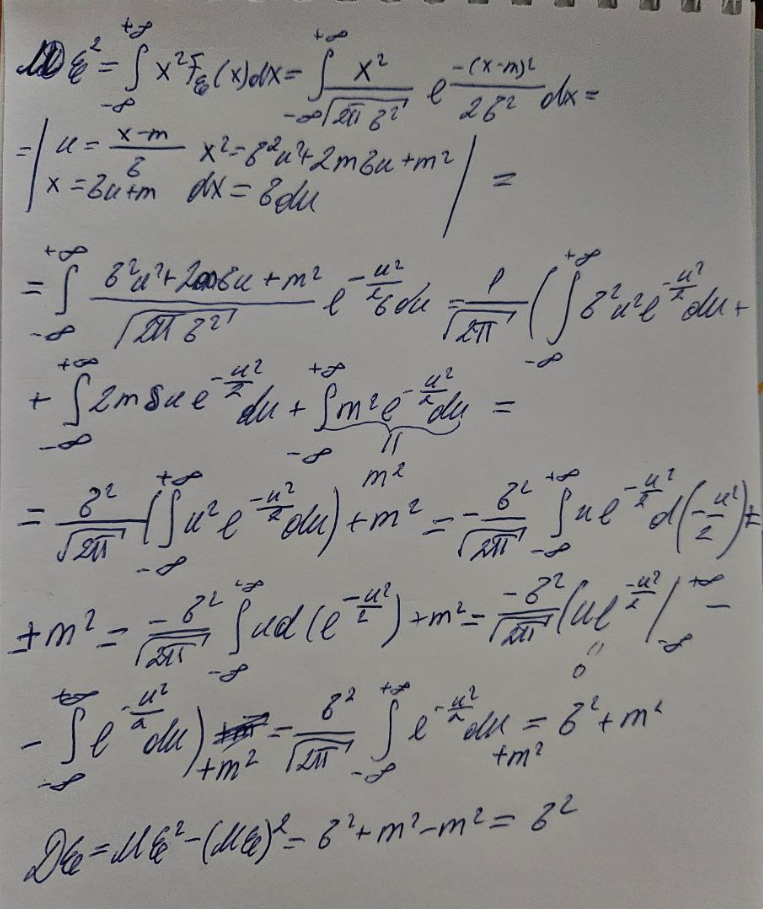 Mξ² = ∫_{-∞}^{+∞} x² F_ξ(x)dx = ∫_{-∞}^{+∞} x²/√(2πσ²) e^{-(x-m)²/2σ²} dx =
= | u = (x-m)/σ x² = σ²u² + 2mσu + m²
x = σu+m dx = σdu | =
= ∫_{-∞}^{+∞} (σ²u² + 2mσu + m²)/√(2πσ²) e^{-u²/2} σdu = 1/√(2π) (∫_{-∞}^{+∞} σ²u² e^{-u²/2} du +
+ ∫_{-∞}^{+∞} 2mσu e^{-u²/2} du + ∫_{-∞}^{+∞} m² e^{-u²/2} du =
"
m²
= σ²/√(2π) (∫_{-∞}^{+∞} u² e^{-u²/2} du) + m² = -σ²/√(2π) ∫_{-∞}^{+∞} u e^{-u²/2} d(-u²/2) +
+ m² = -σ²/√(2π) ∫_{-∞}^{+∞} u d(e^{-u²/2}) + m² = -σ²/√(2π) (u e^{-u²/2} |_{-∞}^{+∞} -
"
0
- ∫_{-∞}^{+∞} e^{-u²/2} du) + m² = σ²/√(2π) ∫_{-∞}^{+∞} e^{-u²/2} du + m² = σ² + m²
Dξ = Mξ² - (Mξ)² = σ² + m² - m² = σ²